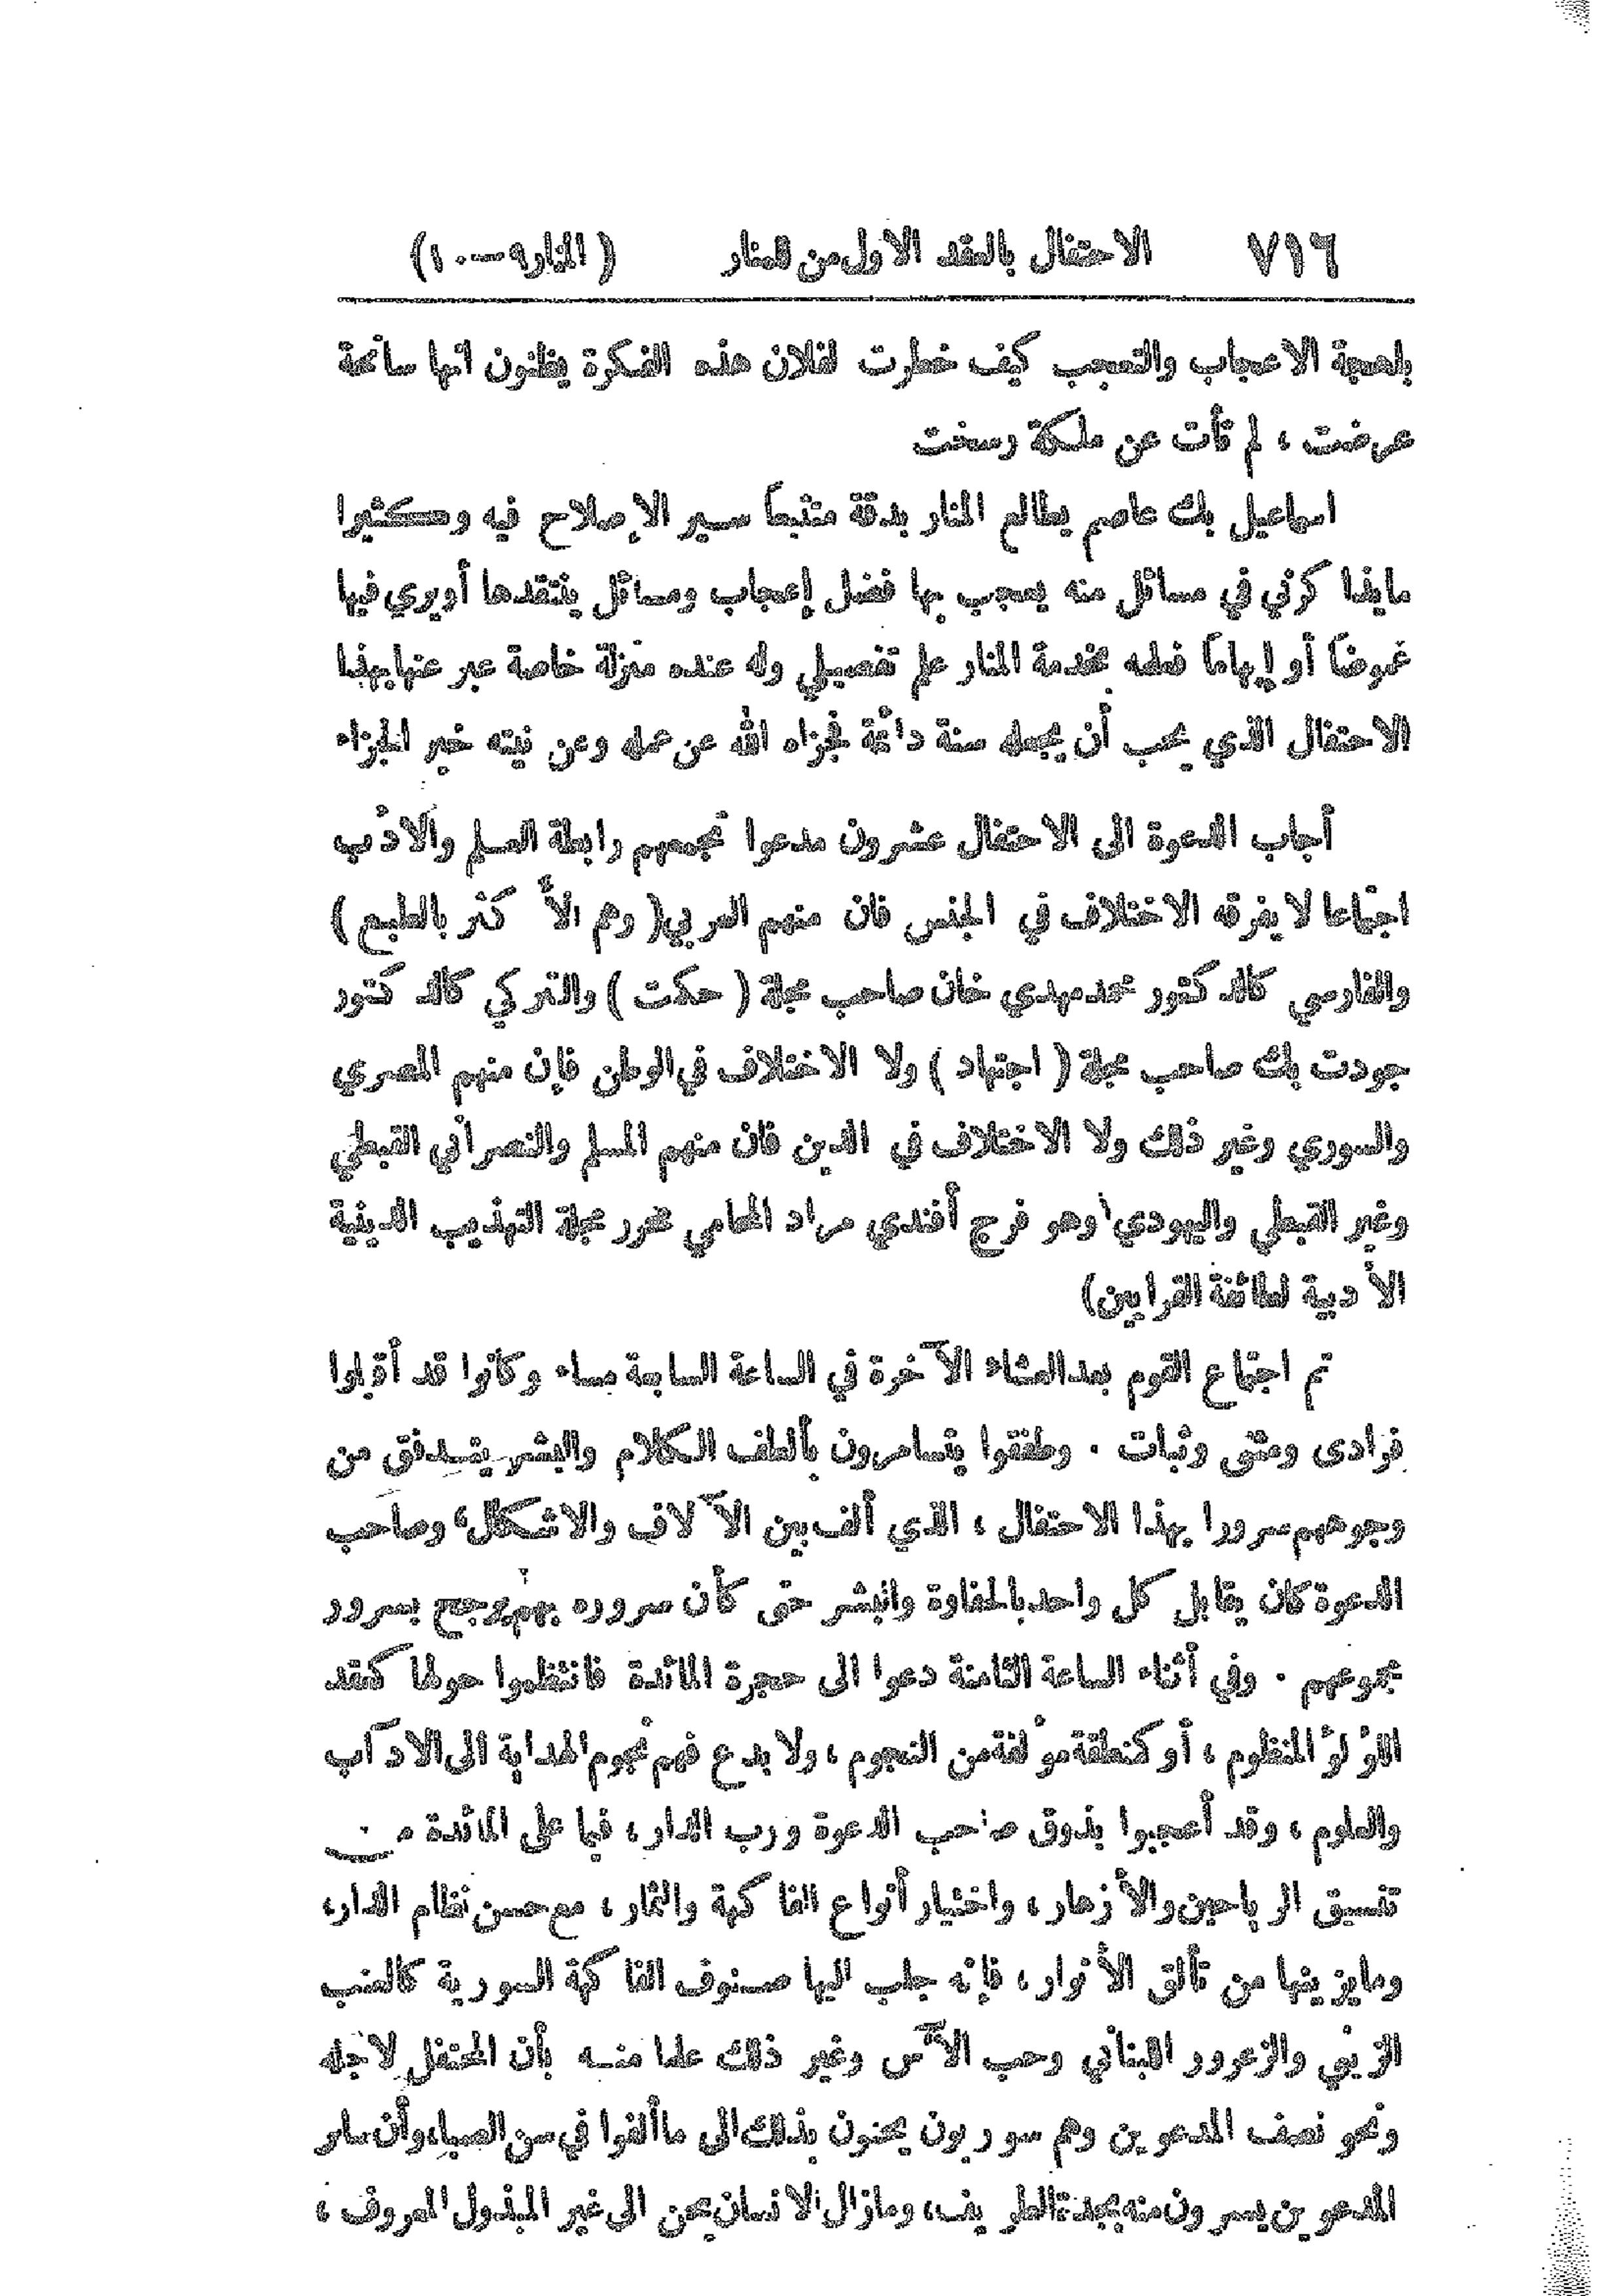 ٧١٦ الاحتفال بالعقد الاول من المنار (المنار ٩ — ١٠)
بلهجة الاعجاب والتعجب كيف خطرت لفلان هذه الفكرة يظنون انها سانحة
عرضت ، لم تأت عن ملكة رسخت
اسماعيل بك عاصم يطالع المنار بدقة متتبعاً سير الإصلاح فيه وكثيرا
مايذا كرني في مسائل منه يعجب بها فضل إعجاب ومسائل ينتقدها أويرى فيها
غموضاً أو إيهاماً فعلمه بخدمة المنار علم تفصيلي وله عنده منزلة خاصة عبر عنها بهذا
الاحتفال الذي يحب أن يجعله سنة دائمة فجزاه الله عن عمله وعن نيته خير الجزاء
أجاب الدعوة الى الاحتفال عشرون مدعوا تجمعهم رابطة العلم والأدب
اجتماعا لا يفرقه الاختلاف في الجنس فان منهم العربي (وهم الأ كثر بالطبع)
والفارسي كالد كتور محمد مهدي خان صاحب مجلة (حكمت) والتركي كالد كتور
جودت بك صاحب مجلة (اجتهاد) ولا الاختلاف في الوطن فإن منهم المصري
والسوري وغير ذلك ولا الاختلاف في الدين فان منهم المسلم والنصراني القبطي
وغير القبطي واليهودي (وهو فرج أفندي مراد المحامي محرر مجلة التهذيب الدينية
الأدبية لطائفة القرايين)
تم اجتماع القوم بعد العشاء الآخرة في الساعة السابعة مساء وكانوا قد أقبلوا
فرادى ومثنى وثبات . وطفقوا يتسامرون بألطف الكلام والبشر يتدفق من
وجوههم سرورا بهذا الاحتفال ، الذي ألف بين الآلاف والاشكال ، وصاحب
الدعوة كان يقابل كل واحد بالحفاوة والبشر حتى كأن سروره بهم يرجح بسرور
مجموعهم . وفي أثناء الساعة الثامنة دعوا الى حجرة المائدة فانتظموا حولها كعقد
اللؤلؤ المنظوم ، أو كمنطقة مؤلفة من النجوم ، ولا بدع فهم نجوم الهداية الى الآداب
والعلوم ، وقد أعجبوا بذوق صاحب الدعوة ورب الدار ، فيما على المائدة من
تنسيق الرياحين والأزهار ، واختيار أنواع الفاكهة والثمار ، مع حسن نظام الدار ،
وما يزينها من تألق الأنوار ، فإنه جلب اليها صنوف الفاكهة السورية كالعنب
الزيني والزعرور اللبناني وحب الآس وغير ذلك علما منه بأن المحتفل لأجله
ونحو نصف المدعوين وهم سوريون يحنون بذلك الى ما ألفوا في سن الصبا ، وأن سائر
المدعوين يسرون منه بجدة الطريف ، وما زال الانسان يحن الى غير المبذول المعروف ،